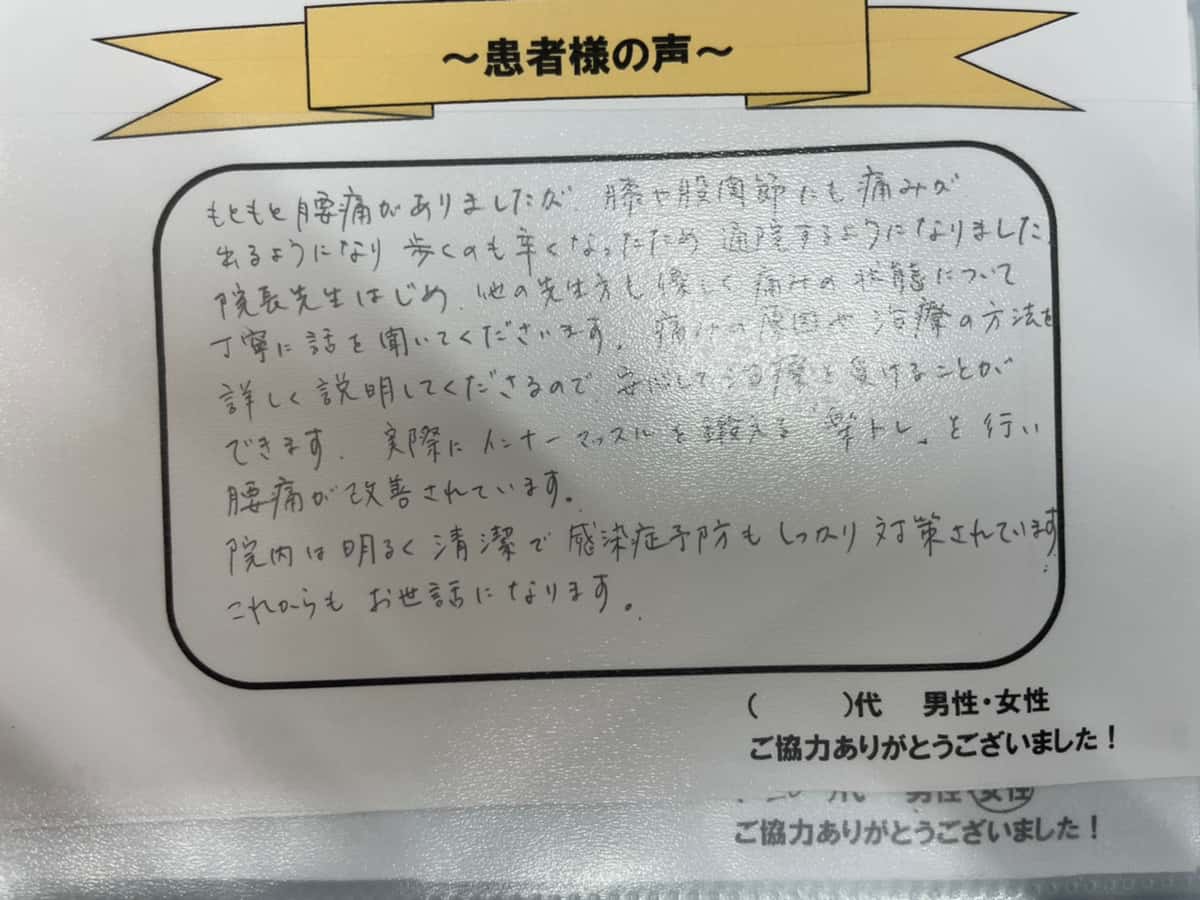 ～患者様の声～
もともと腰痛がありましたが、膝や股関節にも痛みが
出るようになり 歩くのも辛くなったため 通院するようになりました。
院長先生はじめ、他の先生方も優しく 痛みの状態について
丁寧に話を聞いてくださいます。痛みの原因や治療の方法を
詳しく説明してくださるので、安心して治療を受けることが
できます。実際にインナーマッスルを鍛える「楽トレ」を行い
腰痛が改善されています。
院内は明るく清潔で感染症予防もしっかり対策されています。
これからもお世話になります。
( )代 男性・女性
ご協力ありがとうございました！
代 男性・女性
ご協力ありがとうございました！